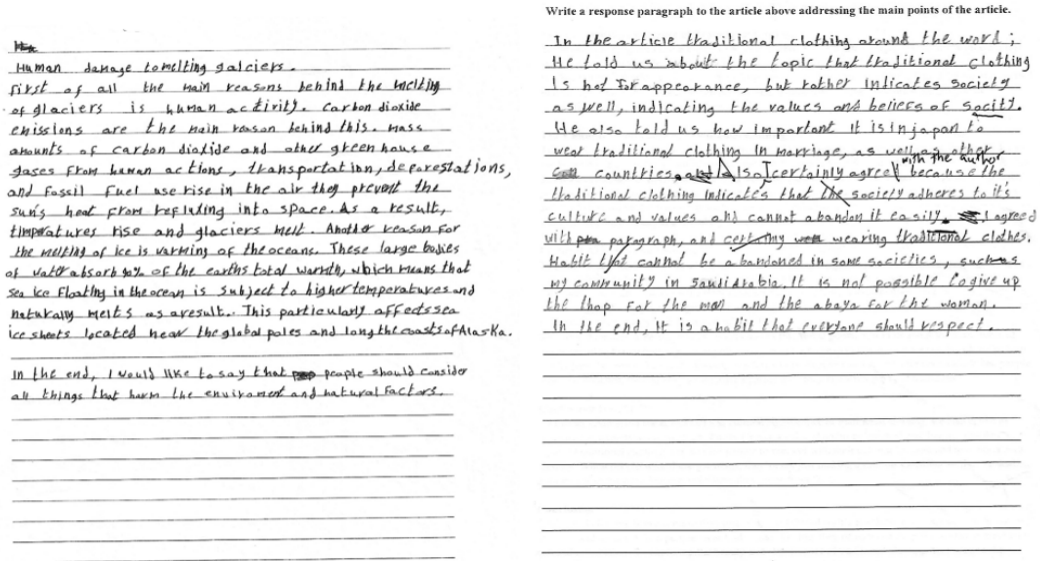 Human damage to melting galciers.
first of all the main reasons behind the melting
of glaciers is human activity. Carbon dioxide
emissions are the main reason behind this. mass
amounts of carbon dioxide and other green house
gases from human actions, transportation, deforestations,
and Fossil Fuel use rise in the air they prevent the
sun's heat from refluting into space. As a result,
timpratures rise and glaciers melt. Another reason for
the melting of ice is warming of the oceans. These large bodies
of water absorb 90% of the earths total warmth, which means that
sea ice Floating in the ocean is subject to higher temperatures and
naturally melts as a result. This particularly affects sea
ice sheets located near the global poles and long the coasts of Alaska.
In the end, I would like to say that people should consider
all things that harm the enuiroment and natural factors.
Write a response paragraph to the article above addressing the main points of the article.
In the article traditional clothing around the word;
He told us about the topic that traditional clothing
Is not for appearance, but rather indicates society
as well, indicating the values and beliefs of socity.
He also told us how important it is in japan to
wear traditional clothing in marriage, as well as other
countries. Also I certainly agree with the author because the
traditional clothing indicates that the society adheres to it's
culture and values and cannot abandon it easily. I agreed
with paragraph, and wearing traditional clothes.
Habit that cannot be abandoned in some societies, such as
my community in saudi Arabia. It is not possible to give up
the thop for the man and the abaya for the woman.
In the end, it is a habit that everyone should respect.